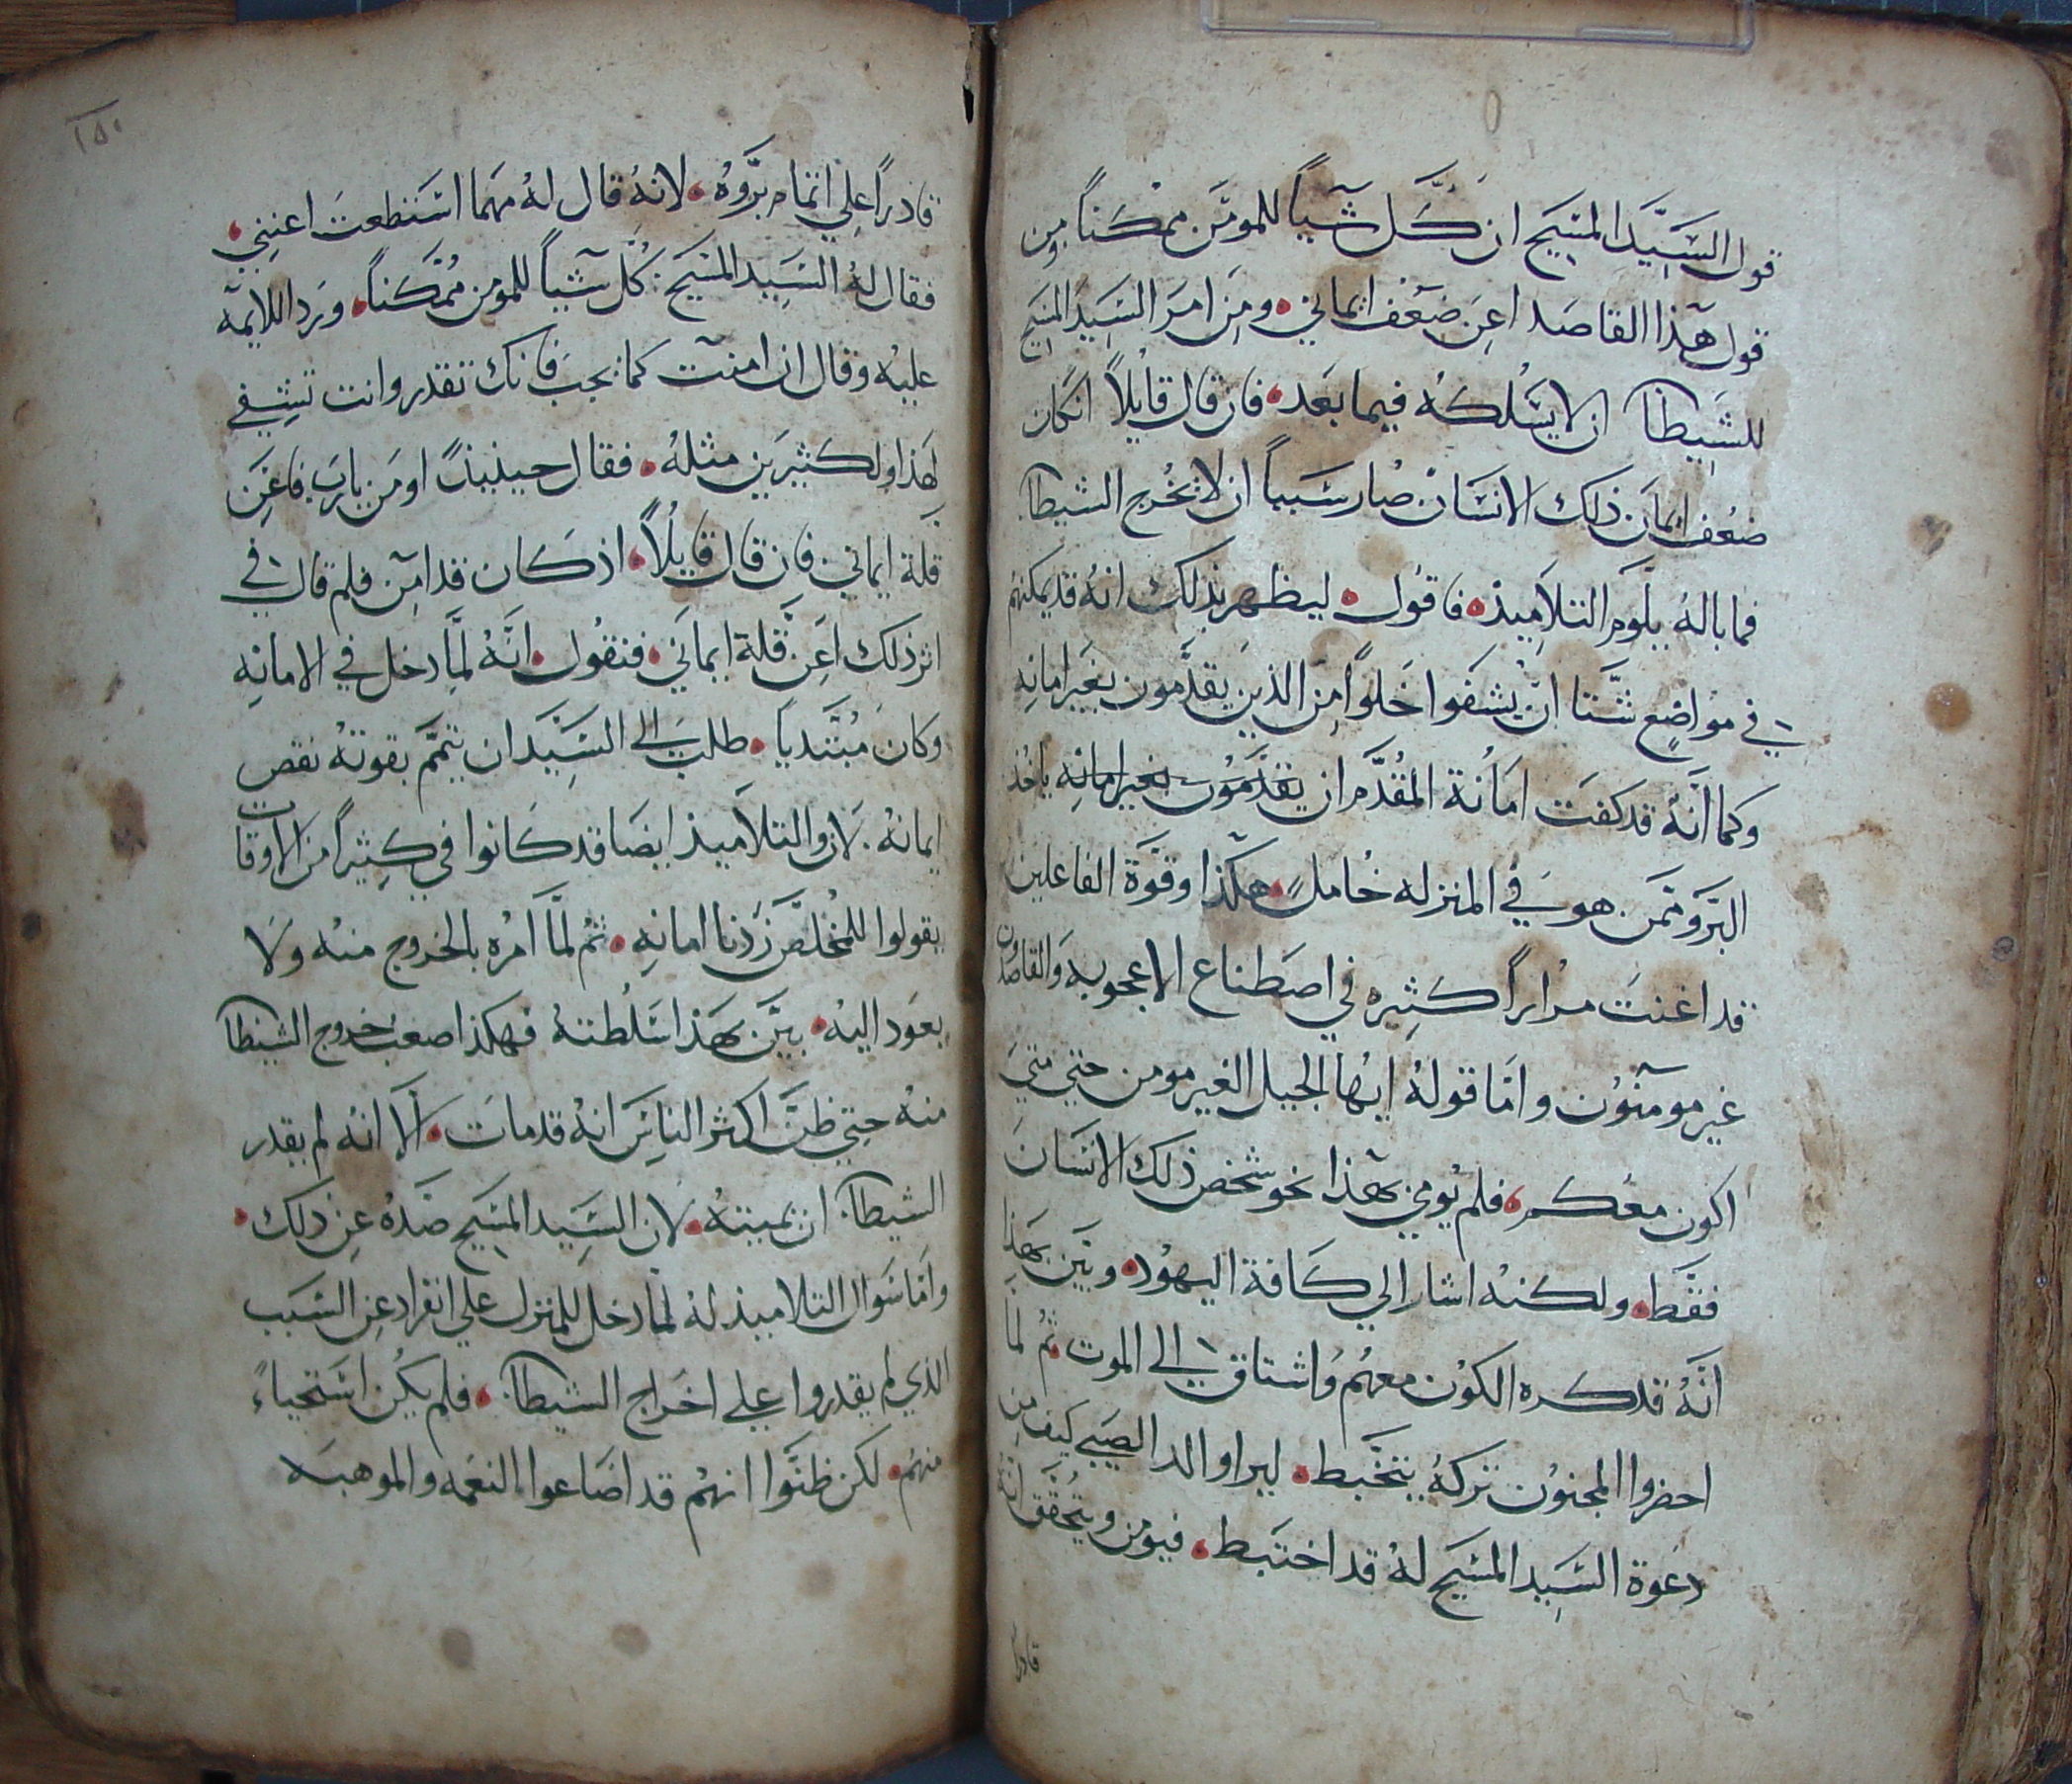 قول السَيّد المسيح ان كل شياً للمومن ممكناً ومن
قول هذا القاصد اعن ضعف ايماني ومن امر السيد المسيح
للشيطان ان لا يسلكه فيما بعد فان قال قايلاً ان كان
ضعف ايمان ذلك الانسان صار سبباً ان لا تخرج الشيطان
فما باله يلوم التلاميذ فاقول ليظهر بذلك انه قد يمكنهم
في مواضع شتا ان يشفوا خلواً من الذين يقدمون بغير امانه
وكما انه قد كفت امانة المقدم ان يقدمون بغير امانه ياخذ
البرو ممن هو في المنزله خامل هكذا وقوة الفاعلين
قد اغنت مراراً كثيره في اصطناع الاعجوبه والقاصدون
غير مومنون واما قوله ايها الجيل الغير مومن حتي متي
اكون معكم فلم يومي بهذا نحو شخص ذلك الانسان
فقط ولكنه اشار الي كافة اليهود وبين بهذا
انه قد كره الكون معهم واشتاق الي الموت ثم لما
احضروا المجنون تركه يتخبط ليرا والد الصبي كيف من
دعوة السيد المسيح له قد اختبط فيومن ويتحقق انه
قادراً
١٥٠
قادراً علي اتمام بروه لانه قال له مهما استطعت اعنني
فقال له السيد المسيح كل شياً للمومن ممكناً ورد اللايمه
عليه وقال ان امنت كما يجب فانك تقدر وانت تشفي
لهذا ولكثيرين مثله فقال حينيذ اومن يارب فاعن
قلة ايماني فان قال قايلاً اذ كان قد امن فلم قال في
اثر ذلك اعن قلة ايماني فنقول انه لما دخل في الامانه
وكان مبتديا طلب الي السيد ان يتمم بقوته نقص
ايمانه لان والتلاميذ ايضا قد كانوا في كثيراً من الاوقات
يقولوا للمخلص زدنا امانه ثم لما امره بالخروج منه ولا
يعود اليه بين بهذا سلطنته فهكذا صعب خروج الشيطان
منه حتي ظن اكثر الناس انه قد مات الا انه لم يقدر
الشيطان ان يميته لان السيد المسيح صده عن ذلك
واما سوال التلاميذ له لما دخل للمنزل علي انفراد عن السبب
الذي لم يقدروا علي اخراج الشيطان فلم يكن استحياءً
منهم لكن ظنوا انهم قد اضاعوا النعمه والموهبه